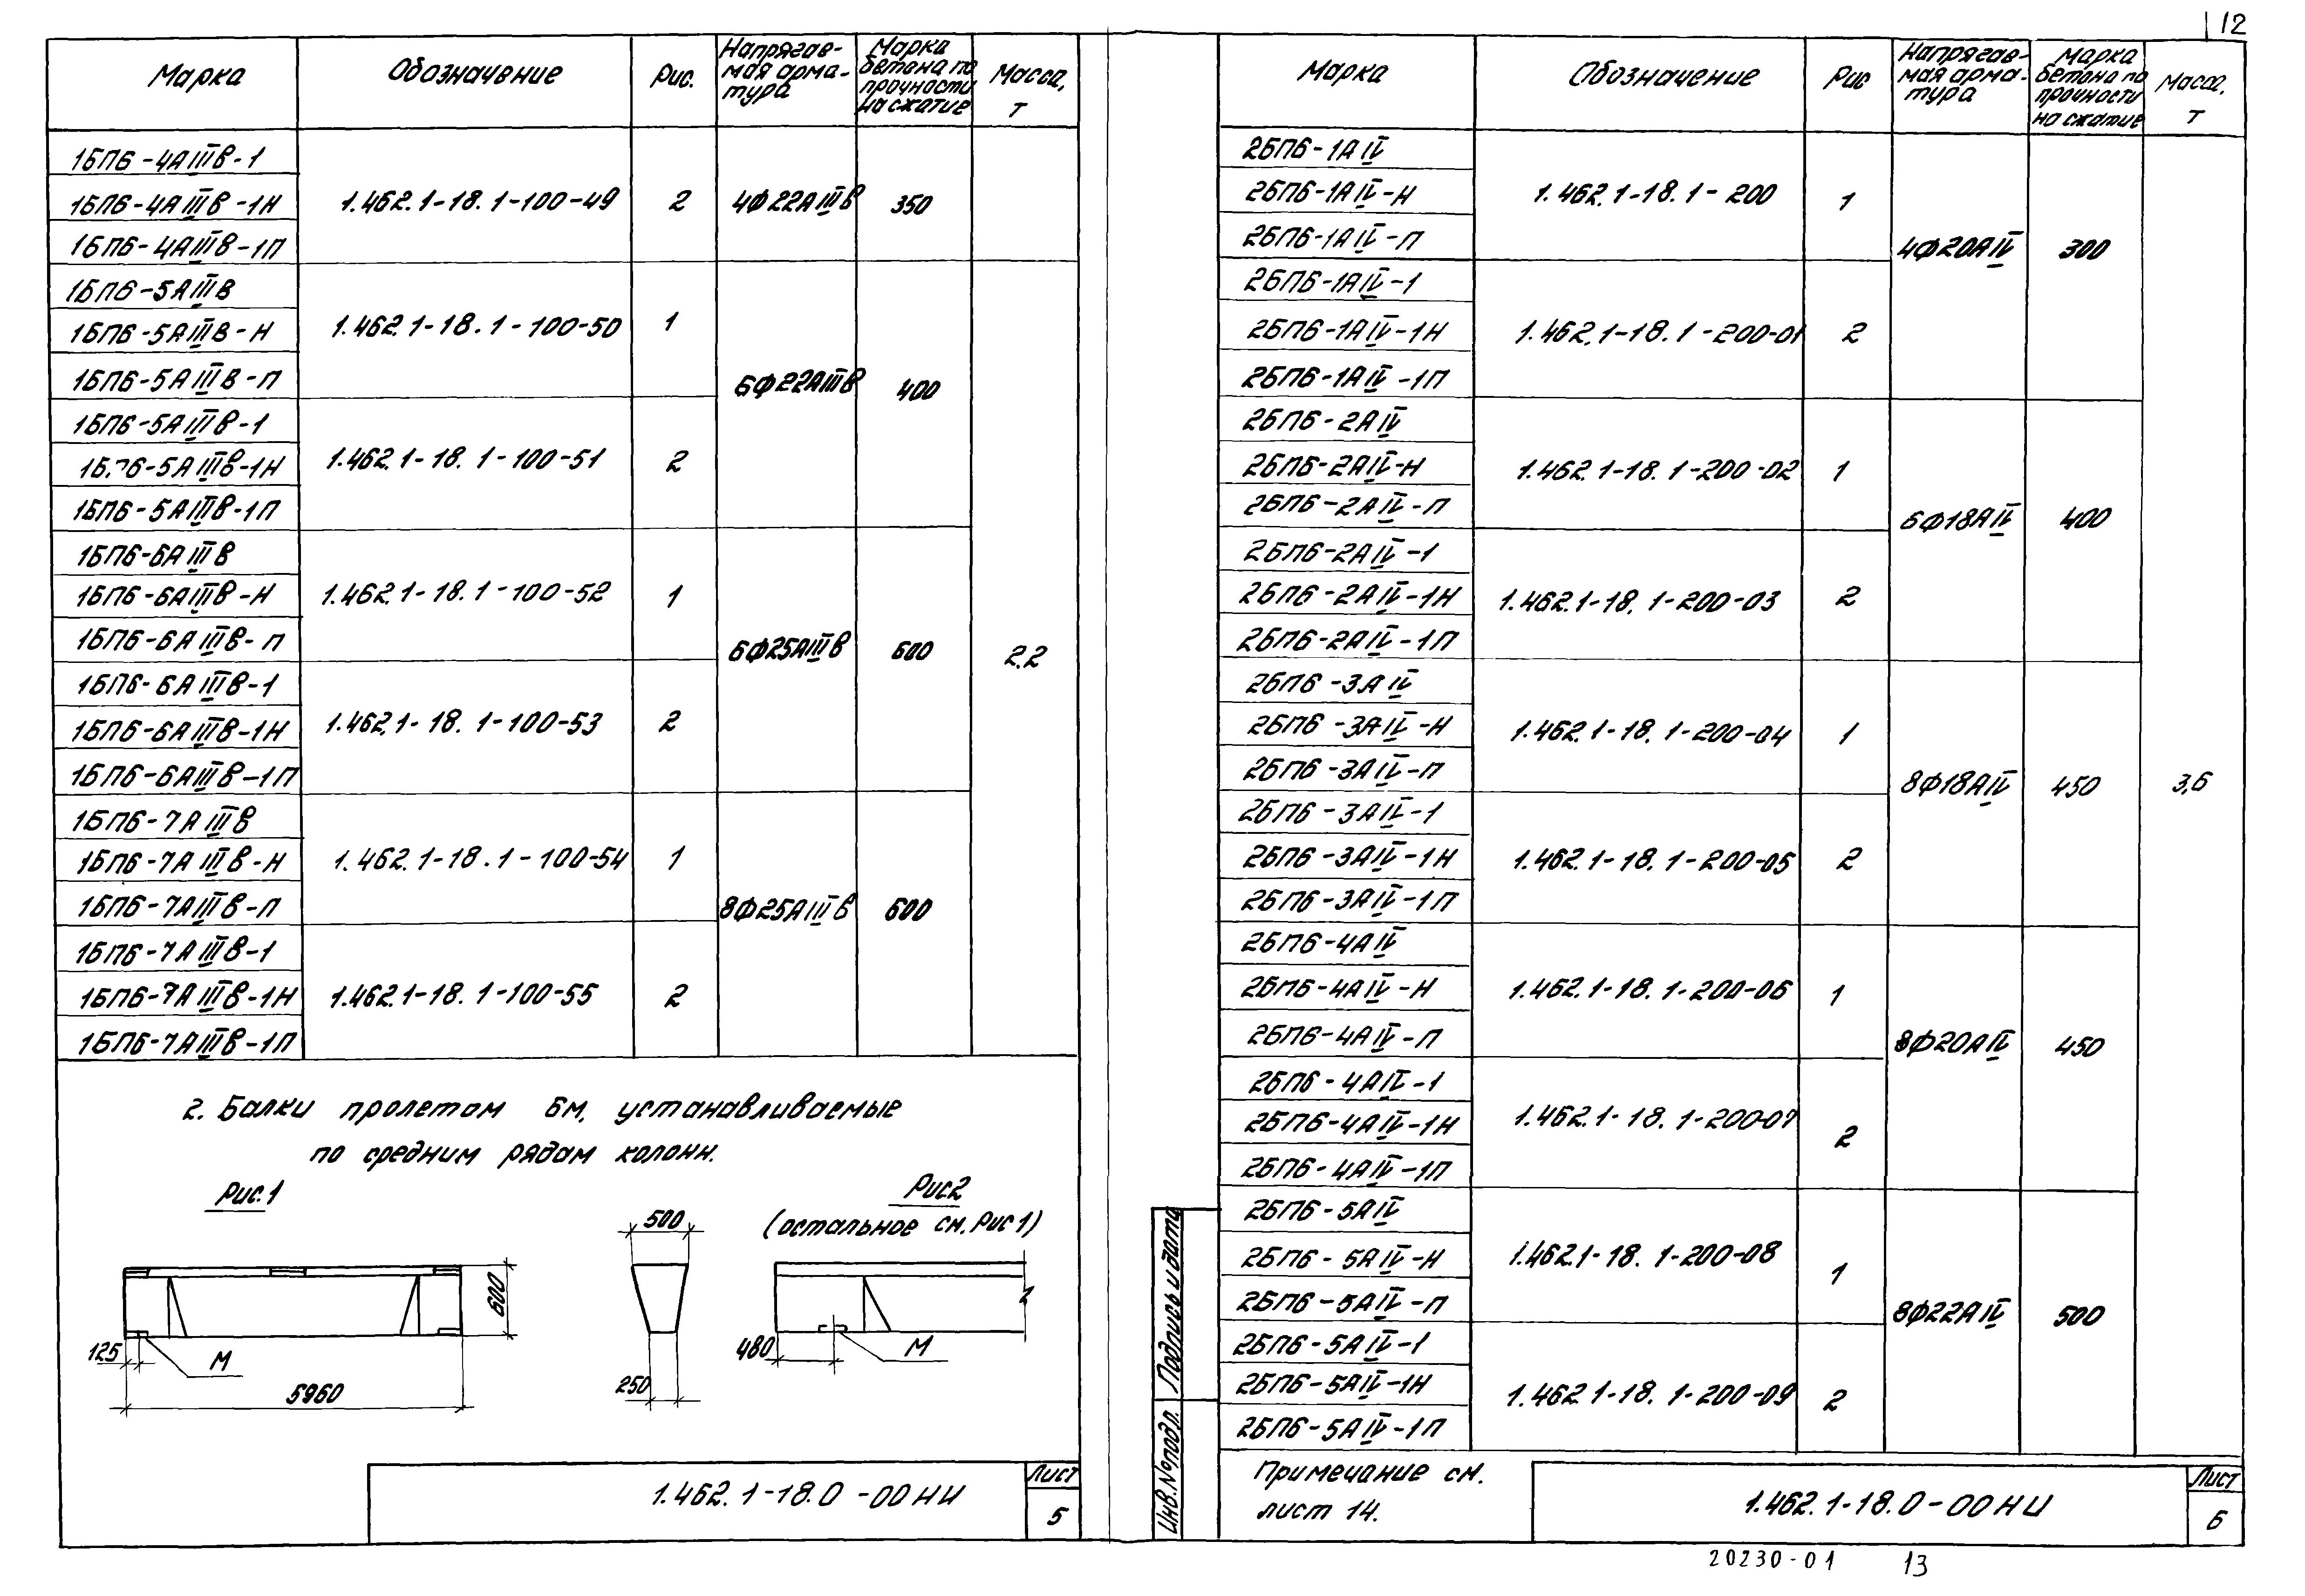 12
Марка Обозначение Рис. Напрягае-мая арма-тура Марка бетона по прочности на сжатие Масса, т
1БП6-4АIIIв-1
1БП6-4АIIIв-1Н 1.462.1-18.1-100-49 2 4ф22АIIIв 350
1БП6-4АIIIв-1П
1БП6-5АIIIв
1БП6-5АIIIв-Н 1.462.1-18.1-100-50 1
1БП6-5АIIIв-П 6ф22АIIIв 400
1БП6-5АIIIв-1
1Б.П6-5АIIIв-1Н 1.462.1-18.1-100-51 2
1БП6-5АIIIв-1П
1БП6-6АIIIв
1БП6-6АIIIв-Н 1.462.1-18.1-100-52 1
1БП6-6АIIIв-П 6ф25АIIIв 600 2.2
1БП6-6АIIIв-1
1БП6-6АIIIв-1Н 1.462.1-18.1-100-53 2
1БП6-6АIIIв-1П
1БП6-7АIIIв
1БП6-7АIIIв-Н 1.462.1-18.1-100-54 1
1БП6-7АIIIв-П 8ф25АIIIв 600
1БП6-7АIIIв-1
1БП6-7АIIIв-1Н 1.462.1-18.1-100-55 2
1БП6-7АIIIв-1П
2. Балки пролетом 6м, устанавливаемые
по средним рядам колонн.
Рис.1
Рис2
(остальное см. Рис1)
500
600
125
М
5960
250
480
М
1.462.1-18.0-00НИ
Лист
5
Марка Обозначение Рис Напрягае-мая арма-тура Марка бетона по прочности на сжатие Масса, т
2БП6-1АIV
2БП6-1АIV-Н 1.462.1-18.1-200 1
2БП6-1АIV-П 4ф20АIV 300
2БП6-1АIV-1
2БП6-1АIV-1Н 1.462.1-18.1-200-01 2
2БП6-1АIV-1П
2БП6-2АIV
2БП6-2АIV-Н 1.462.1-18.1-200-02 1
2БП6-2АIV-П 6ф18АIV 400
2БП6-2АIV-1
2БП6-2АIV-1Н 1.462.1-18.1-200-03 2
2БП6-2АIV-1П
2БП6-3АIV
2БП6-3АIV-Н 1.462.1-18.1-200-04 1
2БП6-3АIV-П 8ф18АIV 450 3,6
2БП6-3АIV-1
2БП6-3АIV-1Н 1.462.1-18.1-200-05 2
2БП6-3АIV-1П
2БП6-4АIV
2БП6-4АIV-Н 1.462.1-18.1-200-06 1
2БП6-4АIV-П 8ф20АIV 450
2БП6-4АIV-1
2БП6-4АIV-1Н 1.462.1-18.1-200-07 2
2БП6-4АIV-1П
2БП6-5АIV
2БП6-5АIV-Н 1.462.1-18.1-200-08 1
2БП6-5АIV-П 8ф22АIV 500
2БП6-5АIV-1
2БП6-5АIV-1Н 1.462.1-18.1-200-09 2
2БП6-5АIV-1П
Подпись и дата
Инв.№подл.
Примечание см.
лист 14.
1.462.1-18.0-00НИ
Лист
6
20230-01 13